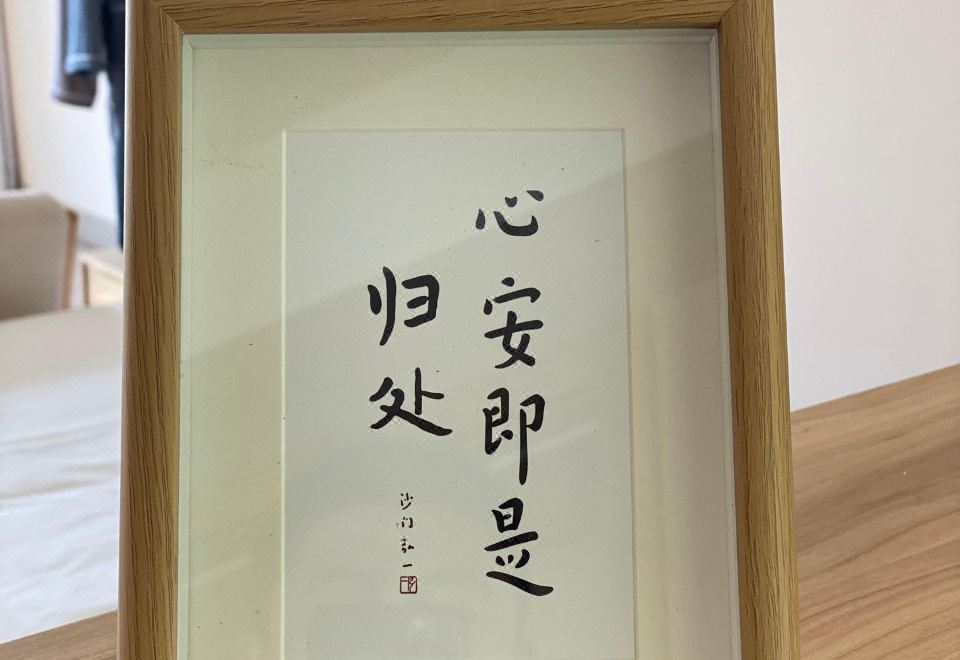 心安即是
归处
沙门弘一